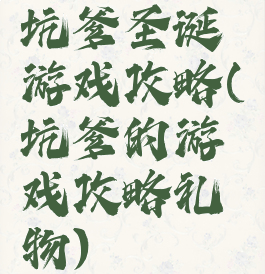 坑爹圣诞
游戏攻略(
坑爹的游
戏攻略礼
物)